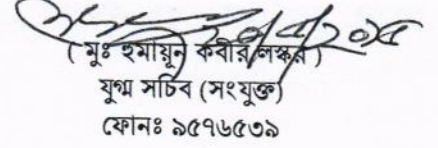 ২০/৪/২০১৫
( মুঃ হুমায়ুন কবীর লস্কর )
যুগ্ম সচিব (সংযুক্ত)
ফোনঃ ৯৫৭৬৫৩৯